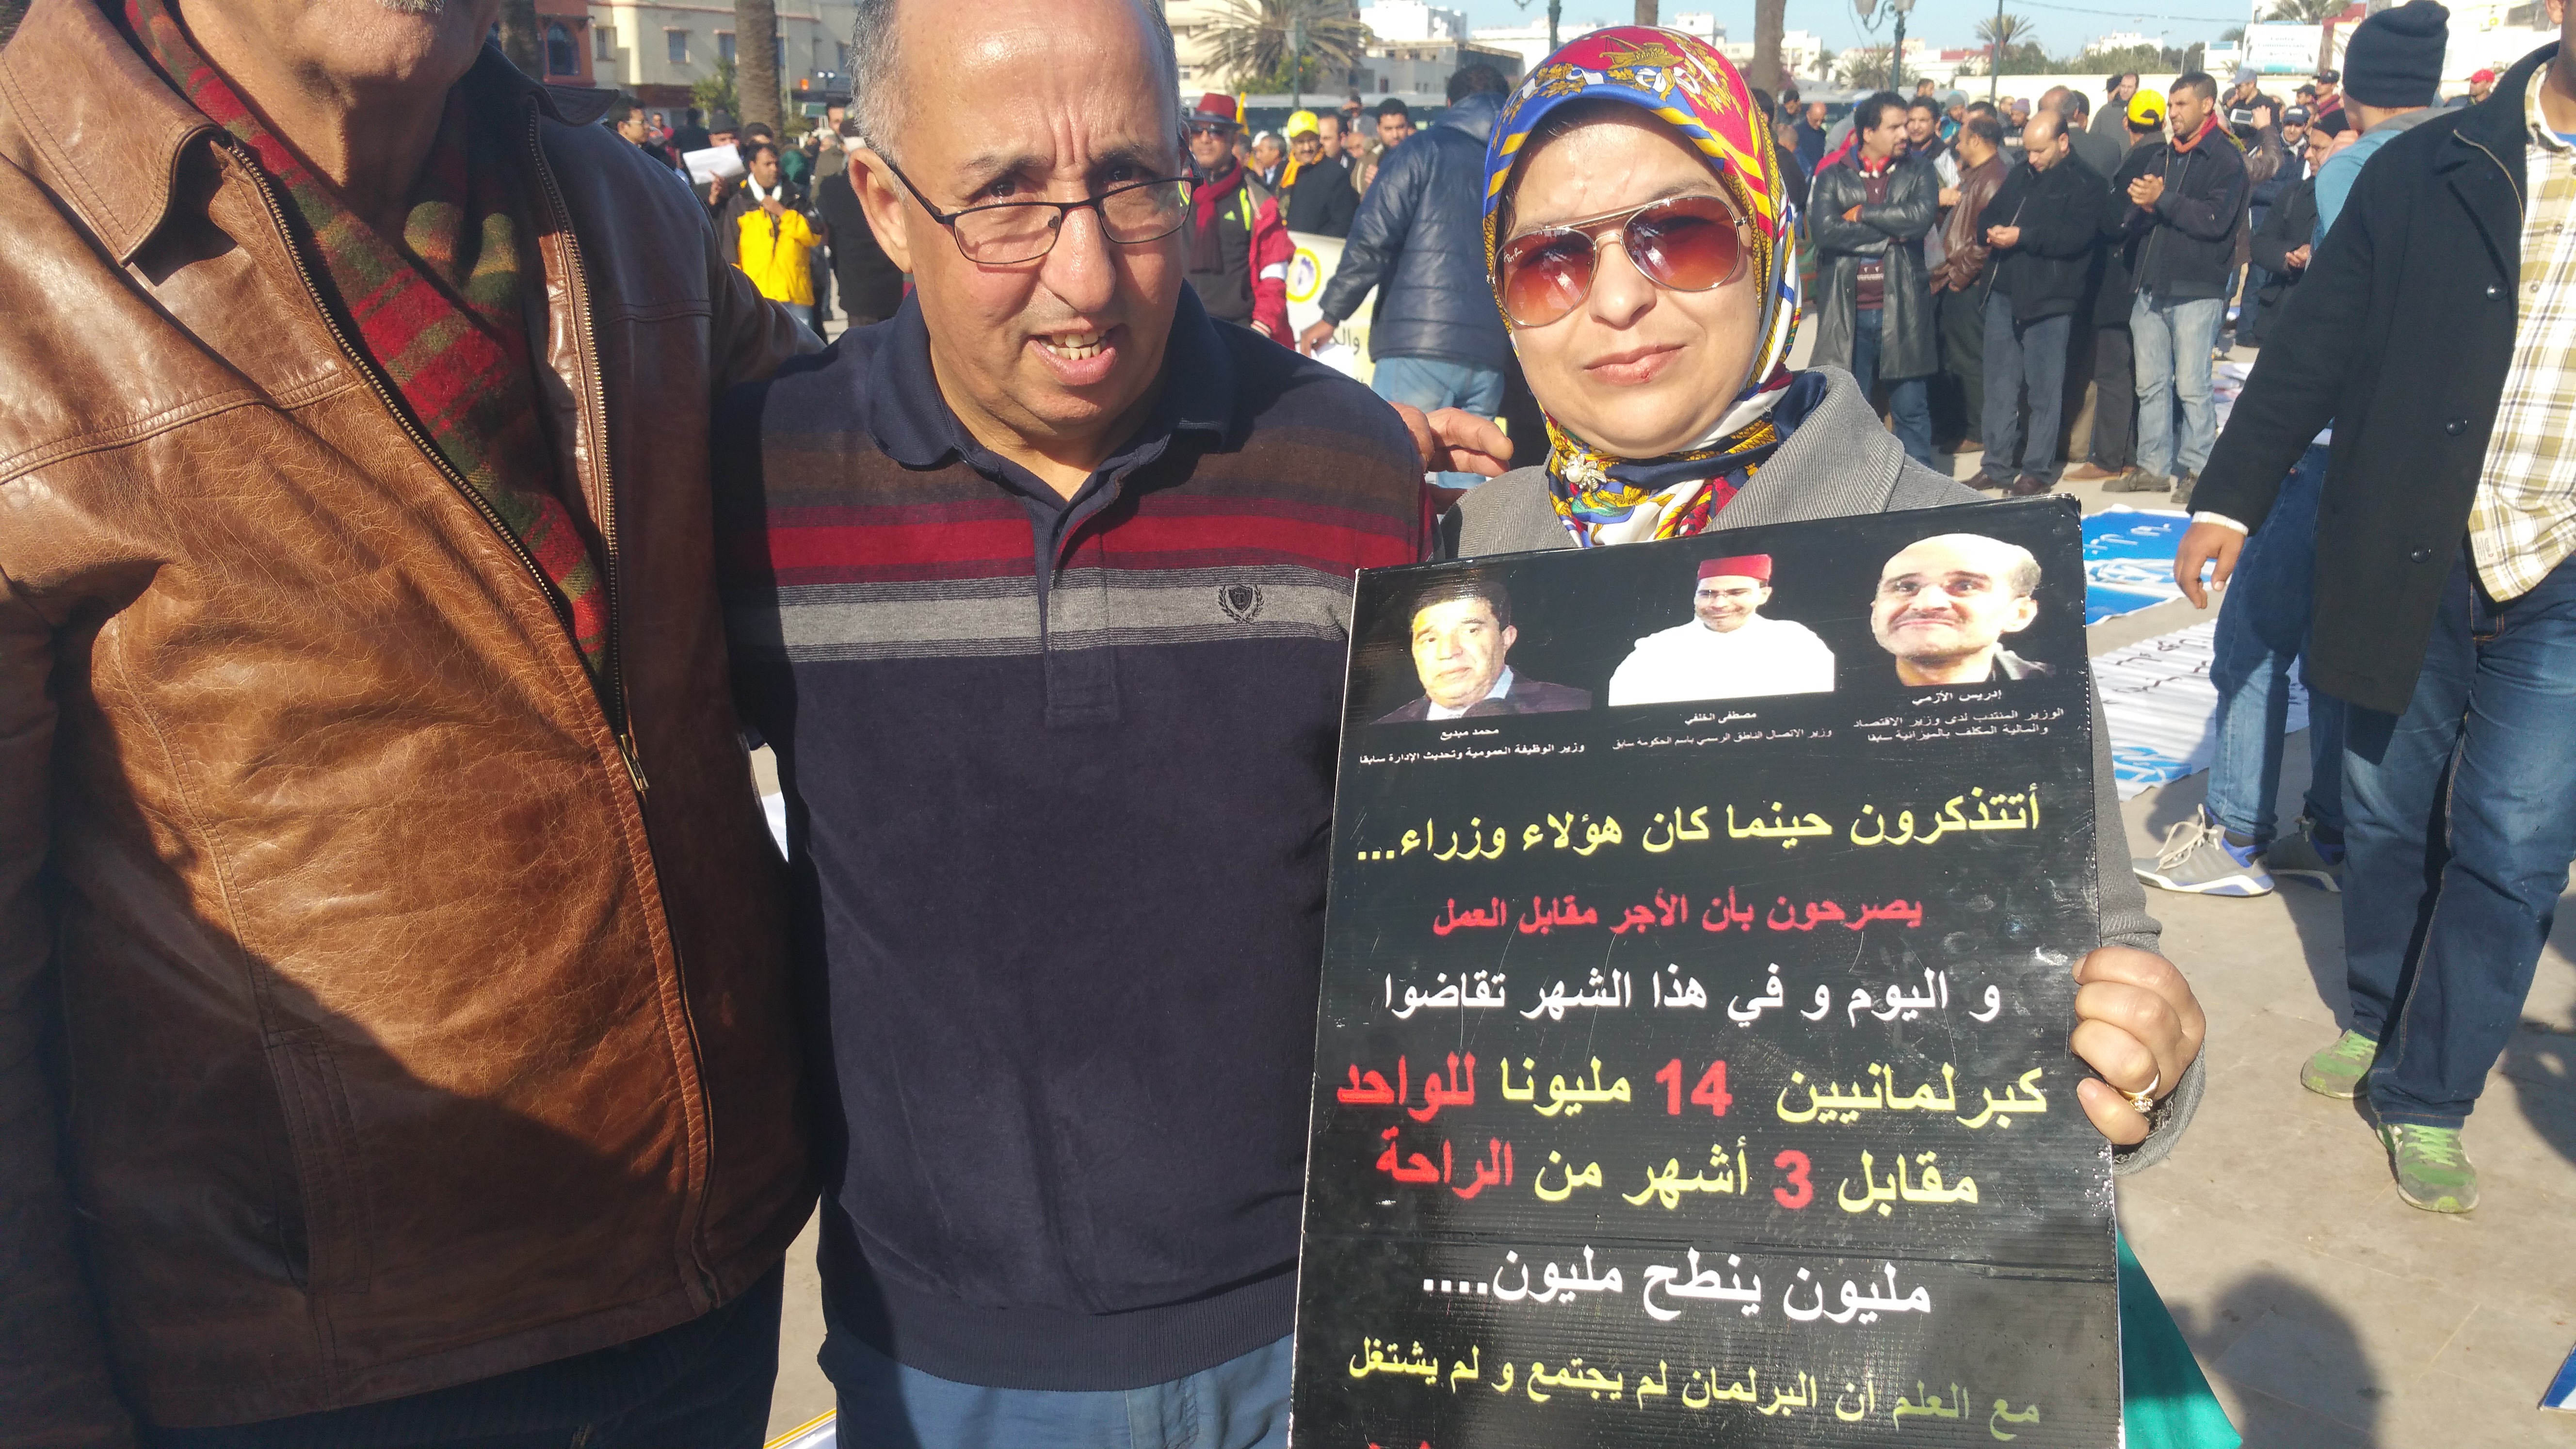 محمد مبديع
وزير الوظيفة العمومية وتحديث الإدارة سابقا
مصطفى الخلفي
وزير الاتصال الناطق الرسمي باسم الحكومة سابق
إدريس الأزمي
الوزير المنتدب لدى وزير الاقتصاد
والمالية المكلف بالميزانية سابقا
أتتذكرون حينما كان هؤلاء وزراء...
يصرحون بأن الأجر مقابل العمل
و اليوم و في هذا الشهر تقاضوا
كبرلمانيين 14 مليونا للواحد
مقابل 3 أشهر من الراحة
مليون ينطح مليون....
مع العلم أن البرلمان لم يجتمع و لم يشتغل
Ray-Ban